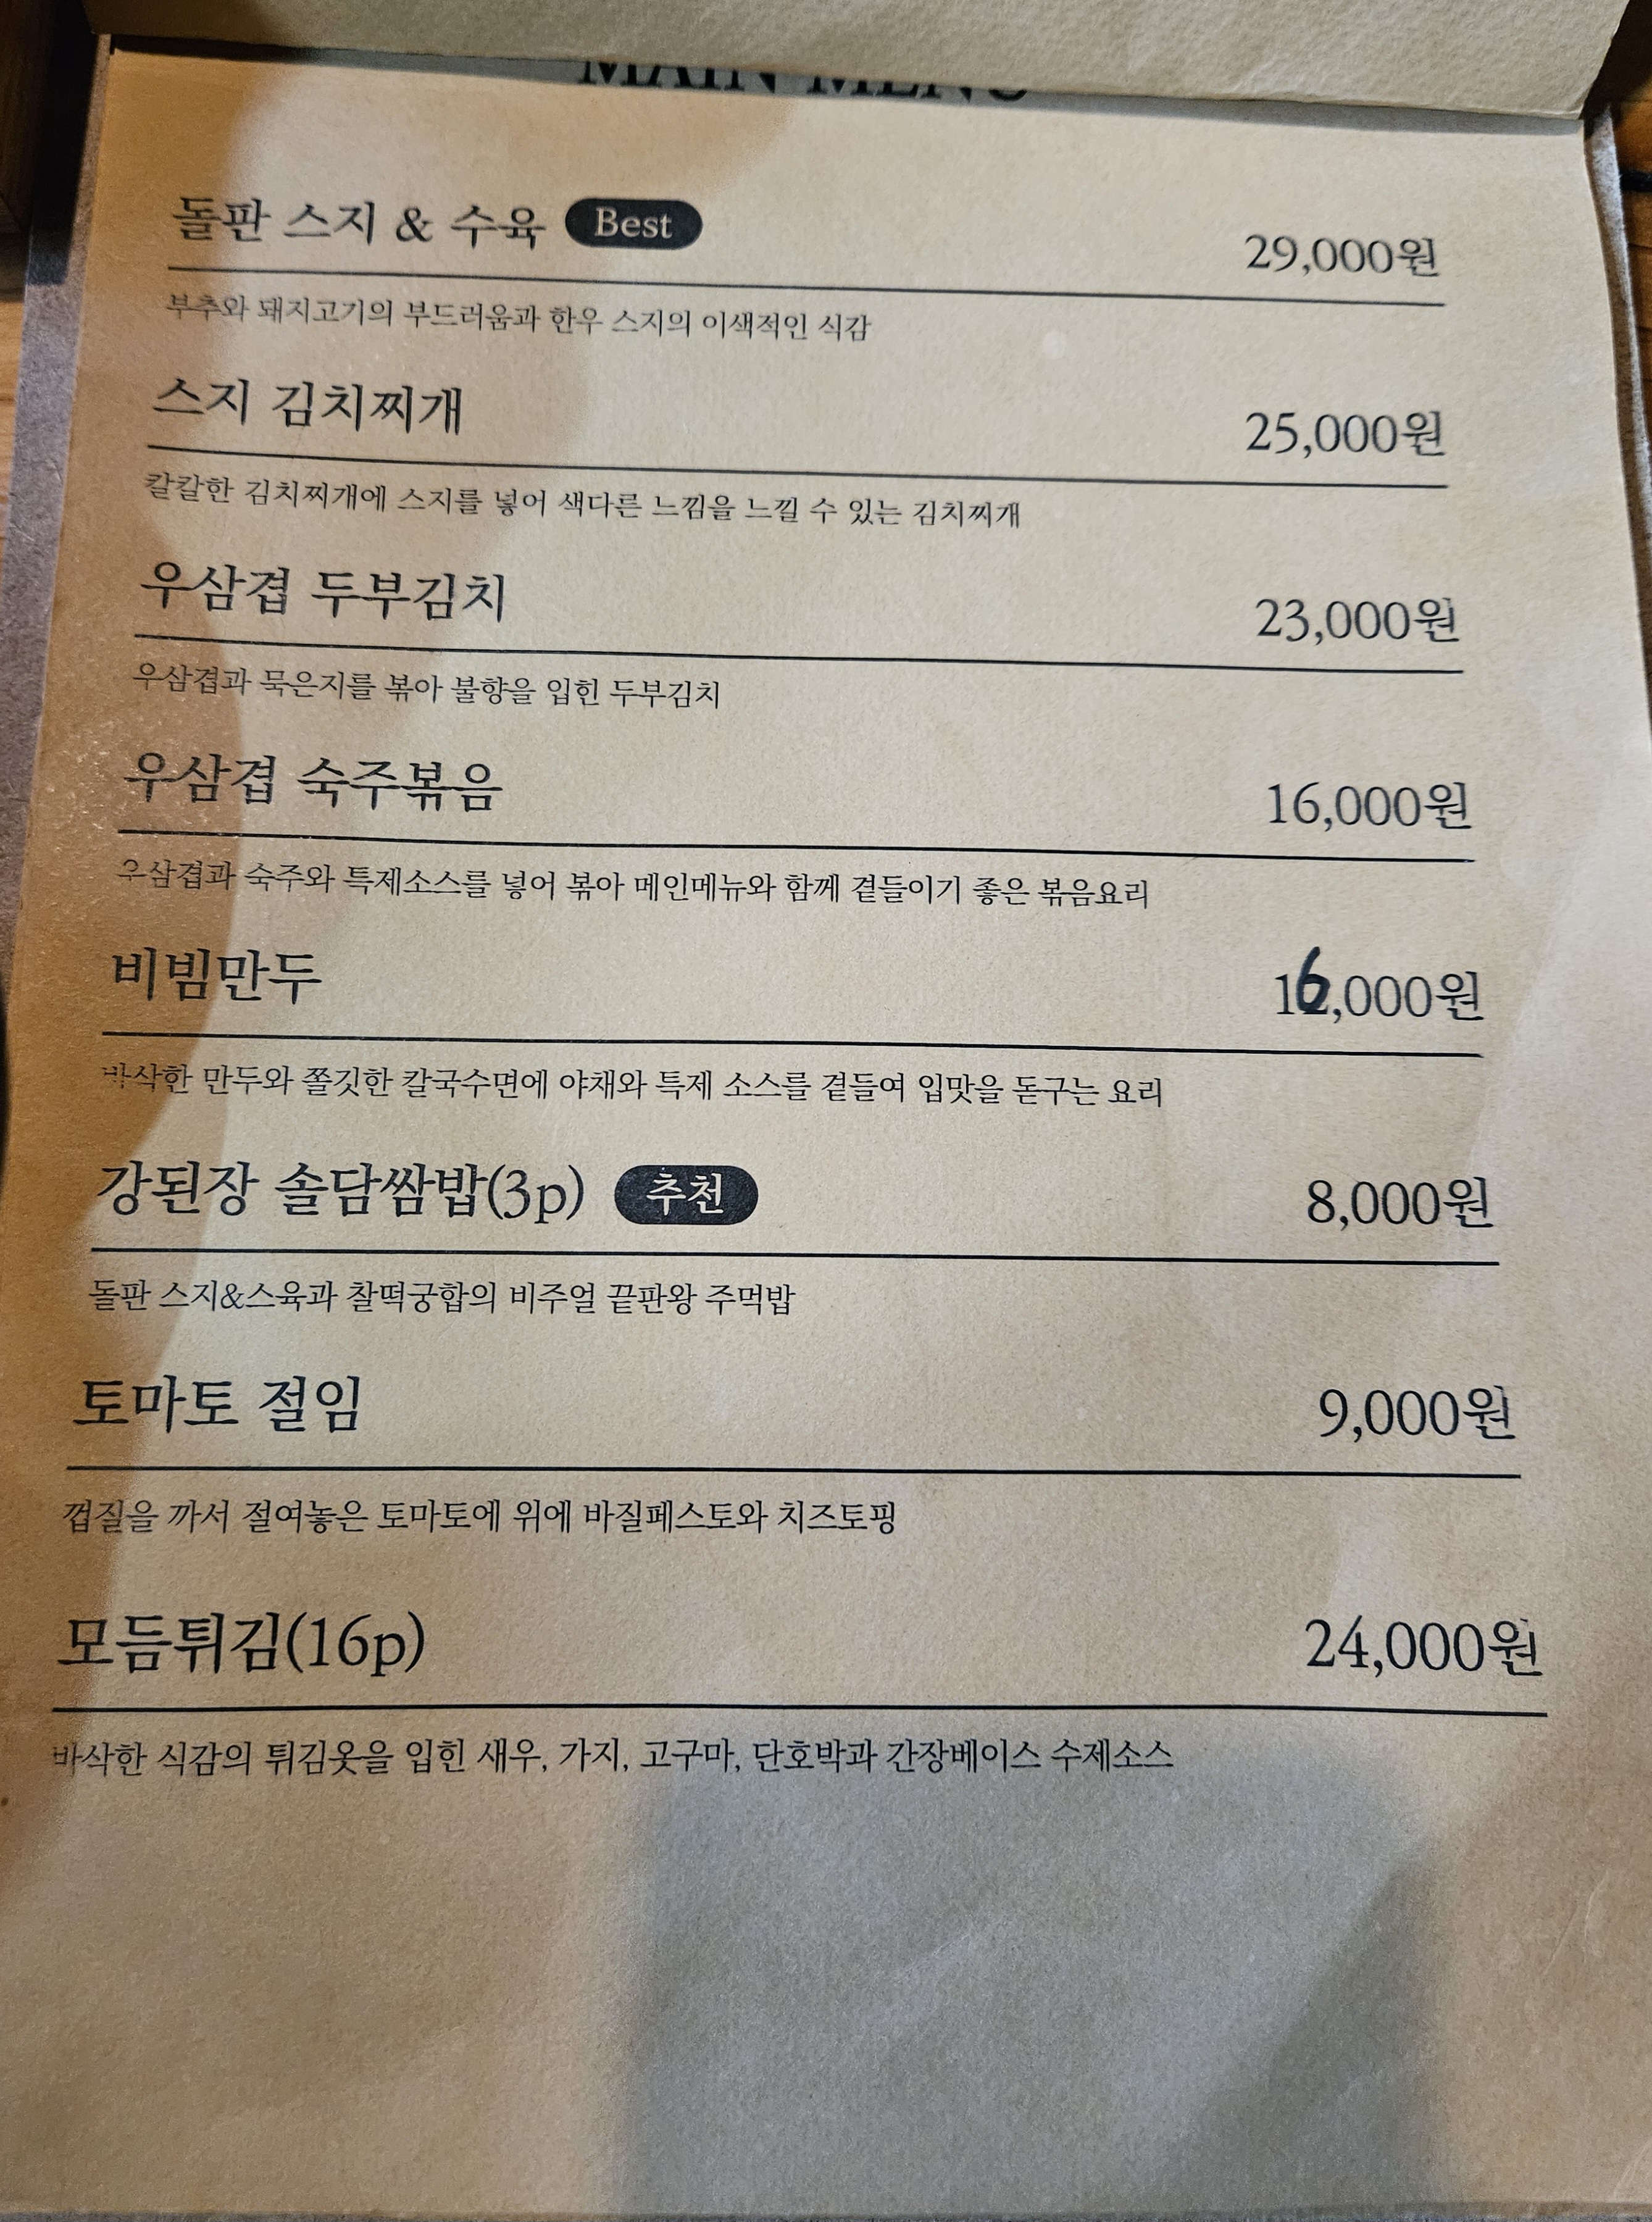 MAIN MENU
돌판 스지 & 수육 Best 29,000원
부추와 돼지고기의 부드러움과 한우 스지의 이색적인 식감
스지 김치찌개 25,000원
칼칼한 김치찌개에 스지를 넣어 색다른 느낌을 느낄 수 있는 김치찌개
우삼겹 두부김치 23,000원
우삼겹과 묵은지를 볶아 불향을 입힌 두부김치
우삼겹 숙주볶음 16,000원
우삼겹과 숙주와 특제소스를 넣어 볶아 메인메뉴와 함께 곁들이기 좋은 볶음요리
비빔만두 16,000원
바삭한 만두와 쫄깃한 칼국수면에 야채와 특제 소스를 곁들여 입맛을 돋구는 요리
강된장 솔담쌈밥(3p) 추천 8,000원
돌판 스지&스육과 찰떡궁합의 비주얼 끝판왕 주먹밥
토마토 절임 9,000원
껍질을 까서 절여놓은 토마토에 위에 바질페스토와 치즈토핑
모듬튀김(16p) 24,000원
바삭한 식감의 튀김옷을 입힌 새우, 가지, 고구마, 단호박과 간장베이스 수제소스